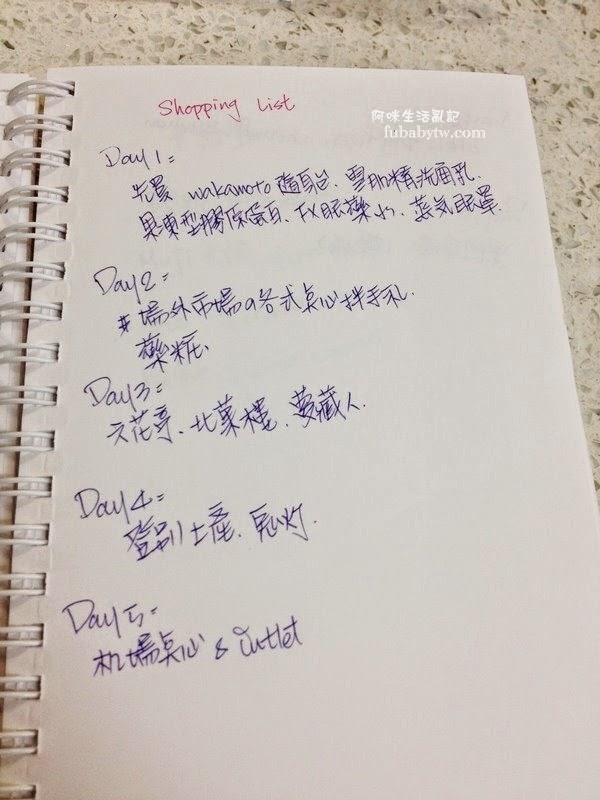 Shopping List
阿咪生活亂記
fubabytw.com
Day1=
先買 wakamoto 隨身台、雪肌精洗面乳、
果凍型膠原蛋白、FX眼藥水、蒸気眼罩
Day2=
#場外市場の各式点心拌手礼
藥粧、
Day3=
六花亭、北菓樓、夢藏人
Day4=
登別土產、
Day5=
机場点心 & Outlet